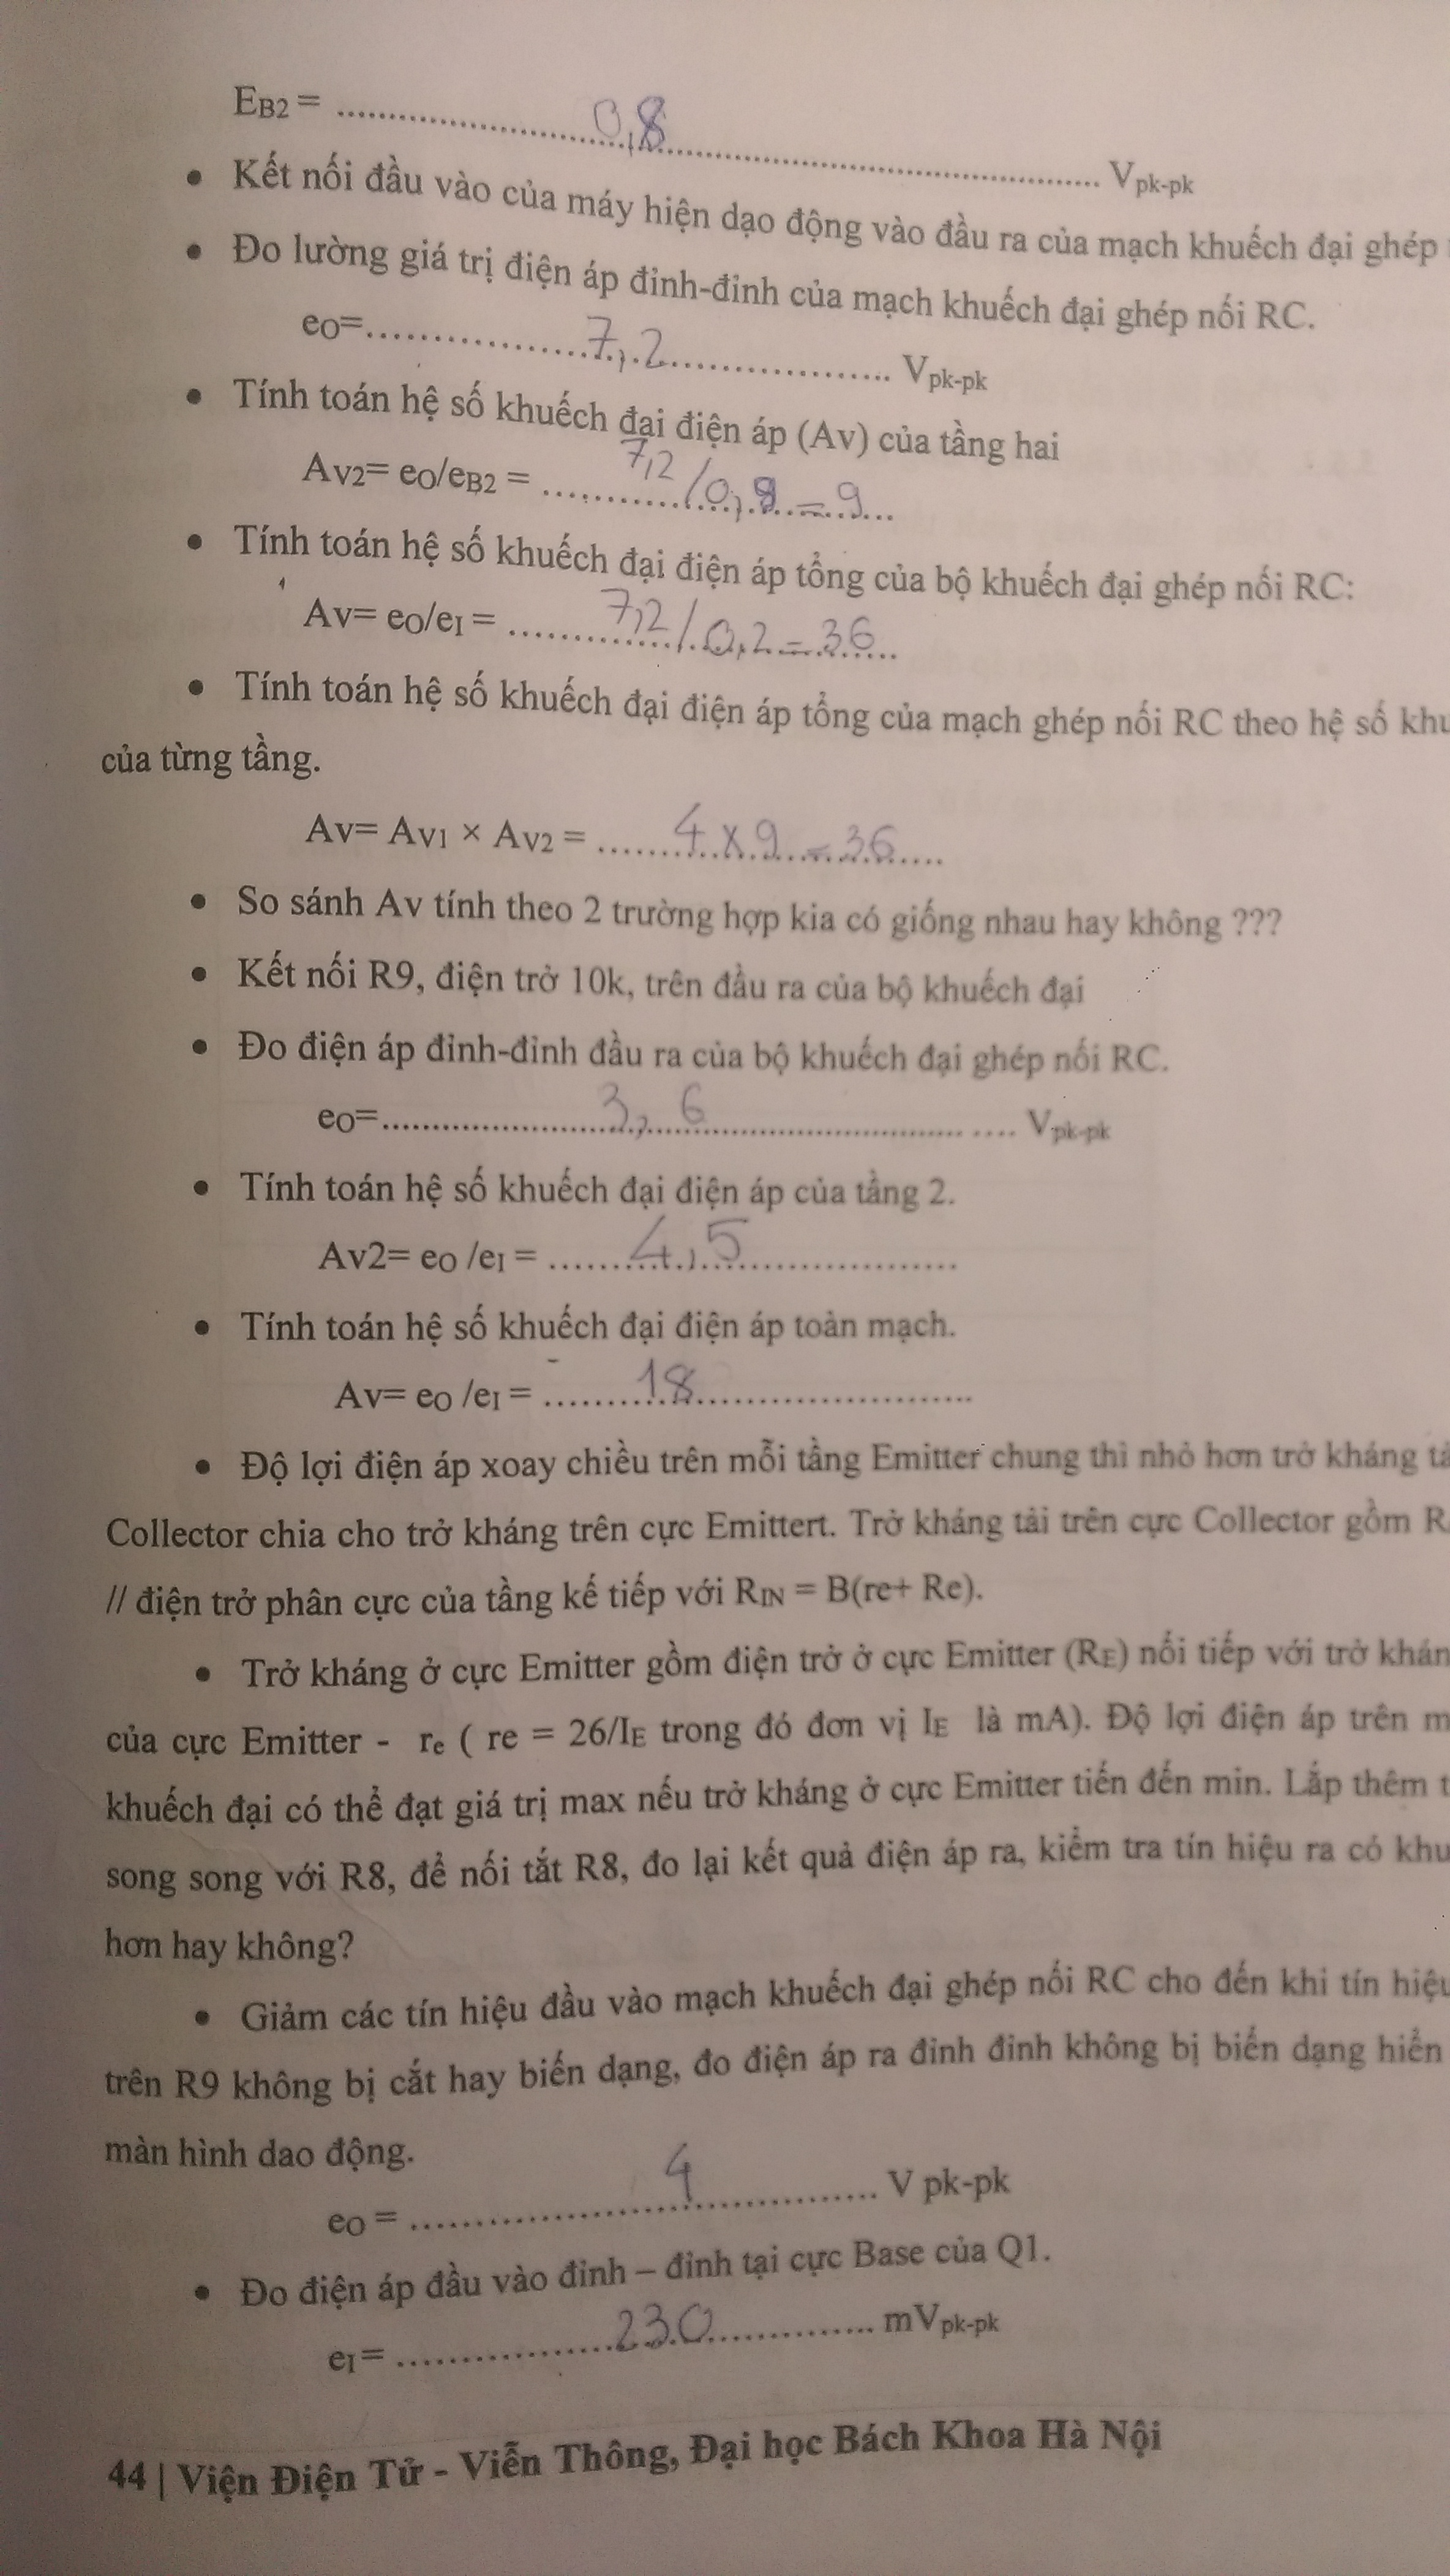 EB2 = ........0,8........ Vpk-pk
• Kết nối đầu vào của máy hiện dạo động vào đầu ra của mạch khuếch đại ghép
• Đo lường giá trị điện áp đỉnh-đỉnh của mạch khuếch đại ghép nối RC.
eO=........7,2........ Vpk-pk
• Tính toán hệ số khuếch đại điện áp (Av) của tầng hai
AV2= eO/eB2 = ........7,2/0,8=9...
• Tính toán hệ số khuếch đại điện áp tổng của bộ khuếch đại ghép nối RC:
AV= eO/eI = ........7,2/0,2=36...
• Tính toán hệ số khuếch đại điện áp tổng của mạch ghép nối RC theo hệ số
của từng tầng.
AV= AV1 × AV2 = ........4x9=36....
• So sánh Av tính theo 2 trường hợp kia có giống nhau hay không ???
• Kết nối R9, điện trở 10k, trên đầu ra của bộ khuếch đại
• Đo điện áp đỉnh-đỉnh đầu ra của bộ khuếch đại ghép nối RC.
eO=........3,6........ Vpk-pk
• Tính toán hệ số khuếch đại điện áp của tầng 2.
Av2= eO /eI = ........4,5........
• Tính toán hệ số khuếch đại điện áp toàn mạch.
Av= eO /eI = ........18........
• Độ lợi điện áp xoay chiều trên mỗi tầng Emitter chung thì nhỏ hơn trở kháng
Collector chia cho trở kháng trên cực Emittert. Trở kháng tải trên cực Collector gồm
// điện trở phân cực của tầng kế tiếp với RIN = B(re+ Re).
• Trở kháng ở cực Emitter gồm điện trở ở cực Emitter (RE) nối tiếp với trở
của cực Emitter - re ( re = 26/IE trong đó đơn vị IE là mA). Độ lợi điện áp trên
khuếch đại có thể đạt giá trị max nếu trở kháng ở cực Emitter tiến đến min. Lắp thêm
song song với R8, để nối tắt R8, đo lại kết quả điện áp ra, kiểm tra tín hiệu ra có
hơn hay không?
• Giảm các tín hiệu đầu vào mạch khuếch đại ghép nối RC cho đến khi tín hiệu
trên R9 không bị cắt hay biến dạng, đo điện áp ra đỉnh đỉnh không bị biến dạng hiển
màn hình dao động.
eO = ........4........ V pk-pk
• Đo điện áp đầu vào đỉnh – đỉnh tại cực Base của Q1.
eI = ........230........ mVpk-pk
44 | Viện Điện Tử - Viễn Thông, Đại học Bách Khoa Hà Nội